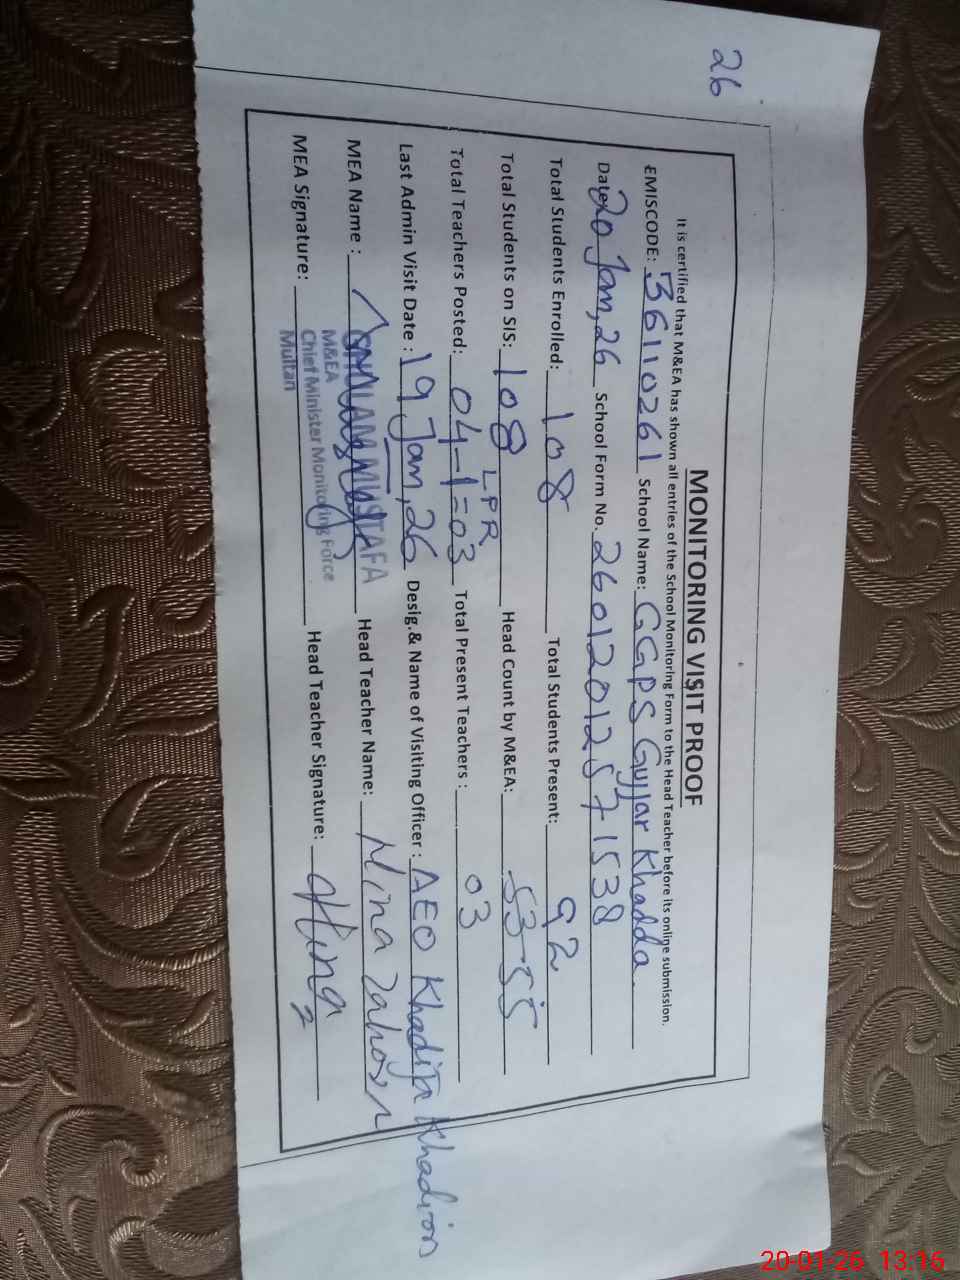 26
MONITORING VISIT PROOF
It is certified that M&EA has shown all entries of the School Monitoring Form to the Head Teacher before its online submission.
EMISCODE: 36110261 School Name: GGPS Gujjar Khadda.
Date: 20 Jan, 26 School Form No. 26012012571538
Total Students Enrolled: 108 Total Students Present: 92
Total Students on SIS: 108 Head Count by M&EA: 53-55
LPR
Total Teachers Posted: 04-1=03 Total Present Teachers: 03
Last Admin Visit Date: 19 Jan, 26 Desig.& Name of Visiting Officer: AEO Khadija
MEA Name: GHULAM MUSTAFA Head Teacher Name: Hina
M&EA
Chief Minister Monitoring Force
Multan
MEA Signature: Head Teacher Signature: Hina
20-01-26 13:16